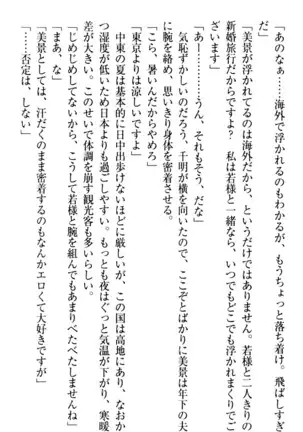 「あのなぁ……海外で浮かれるのもわかるが、ちょっと落ち着け。飛ばしすぎ
だ」
「美景が浮かれてるのは海外だから、というだけではありません。若様と二人きりの
新婚旅行だからですよ？　私は若様と一緒なら、いつでもどこでも浮かれまくりでご
ざいます」
「あー……うん、それもそう、だな」
　気恥ずかしいのだろう、千明が横を向いたので、ここぞとばかりに美景は年下の夫
に腕を絡め、思いきり身体を密着させる。
「こら、暑いんだからやめろ」
「東京よりは涼しいですよ」
　中東の夏は基本的に日中出歩けないほどに厳しいが、この国は高地にあり、なおか
つ湿度が低いため日本よりも過ごしやすい。もっとも夜はぐっと気温が下がり、寒暖
差が大きい。このせいで体調を崩す観光客も多いらしい。
「じめじめしてないから、こうして若様と腕を組んでもあまりべたべたしませんね」
「まあ、な」
「美景としては、汗だくのまま密着するのもなんかエロくて大好きですが」
「……否定は、しない」